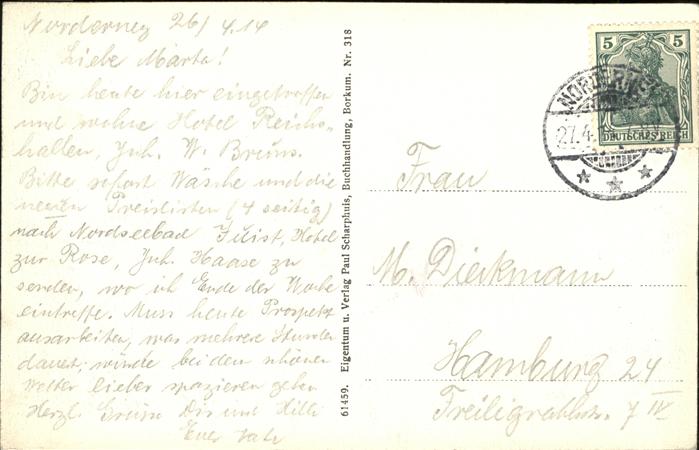 Norderney 26/4.14
Liebe Marta!
Bin heute hier eingetroffen
und wohne Hotel Reichs-
hallen, Inh. W. Bruns.
Bitte sofort Wäsche und die
neuen Preislisten (4 seitig)
nach Nordseebad Juist, Hotel
zur Rose, Inh. Haase zu
senden, wo ich Ende der Woche
eintreffe. Muss heute Prospekt
ausarbeiten, was mehrere Stunden
dauert, würde bei dem schönen
Wetter lieber spazieren gehen
Herzl. Grüsse Dir und Hilli
Euer
61459. Eigentum u. Verlag Paul Scharphuis, Buchhandlung, Borkum. Nr. 318
5 5
DEUTSCHES REICH
NORDERNEY
27.4.
Frau
M. Dieckmann
Hamburg 24
Freiligrathstr. 7 IV